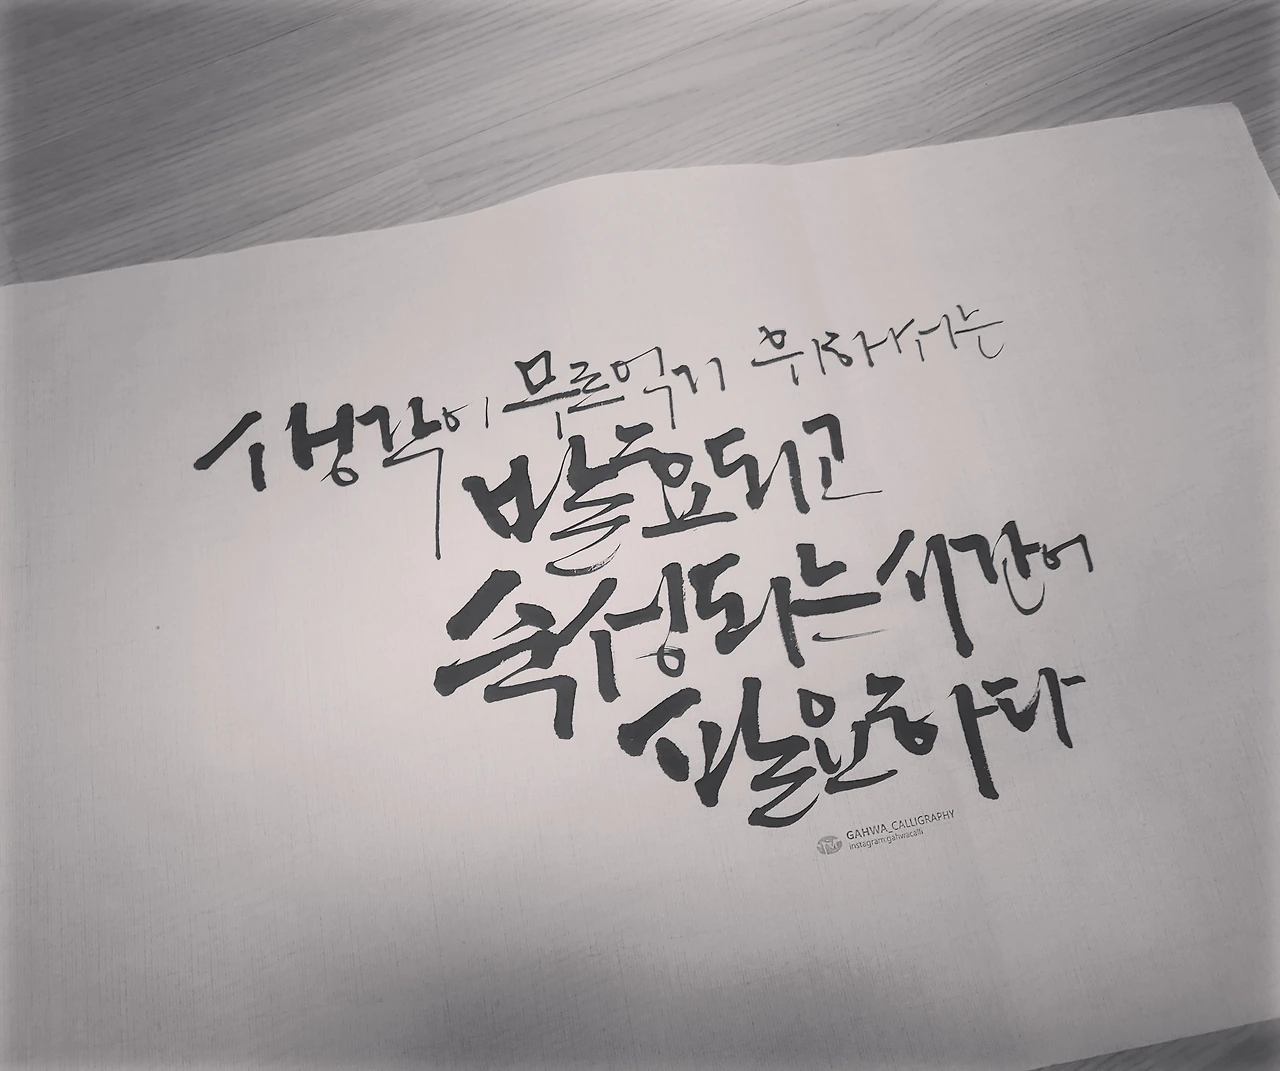 생각이 무르익기 위해서는
발효되고
숙성되는 시간이
필요하다
GAHWA_CALLIGRAPHY
instagram:gahwacalli